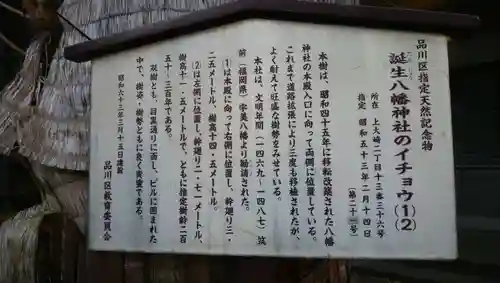 品川区指定天然記念物
誕生八幡神社のイチョウ(1)(2)
所在 上大崎二丁目十三番三十六号
指定 昭和五十三年二月十四日
(第二十一号)
本樹は、昭和四十五年に移転改築された八幡
神社の本殿入口に向って両側に位置している。
これまで道路拡張により三度も移植されたが、
よく耐えて旺盛な樹勢をみせている。
本社は、文明年間(一四六九〜一四八七)筑
前(福岡県)宇美八幡より勧請された。
(1)は本殿に向って右側に位置し、幹廻り三・
二五メートル、樹高十四・五メートル。
(2)は左側に位置し、幹廻り二・七一メートル、
樹高十一・五メートルで、ともに推定樹齢二百
五十〜三百年である。
双樹とも、目黒通りに面し、ビルに囲まれた
中で、樹姿・樹勢ともに良く貴重である。
昭和六十三年二月十五日建設
品川区教育委員会